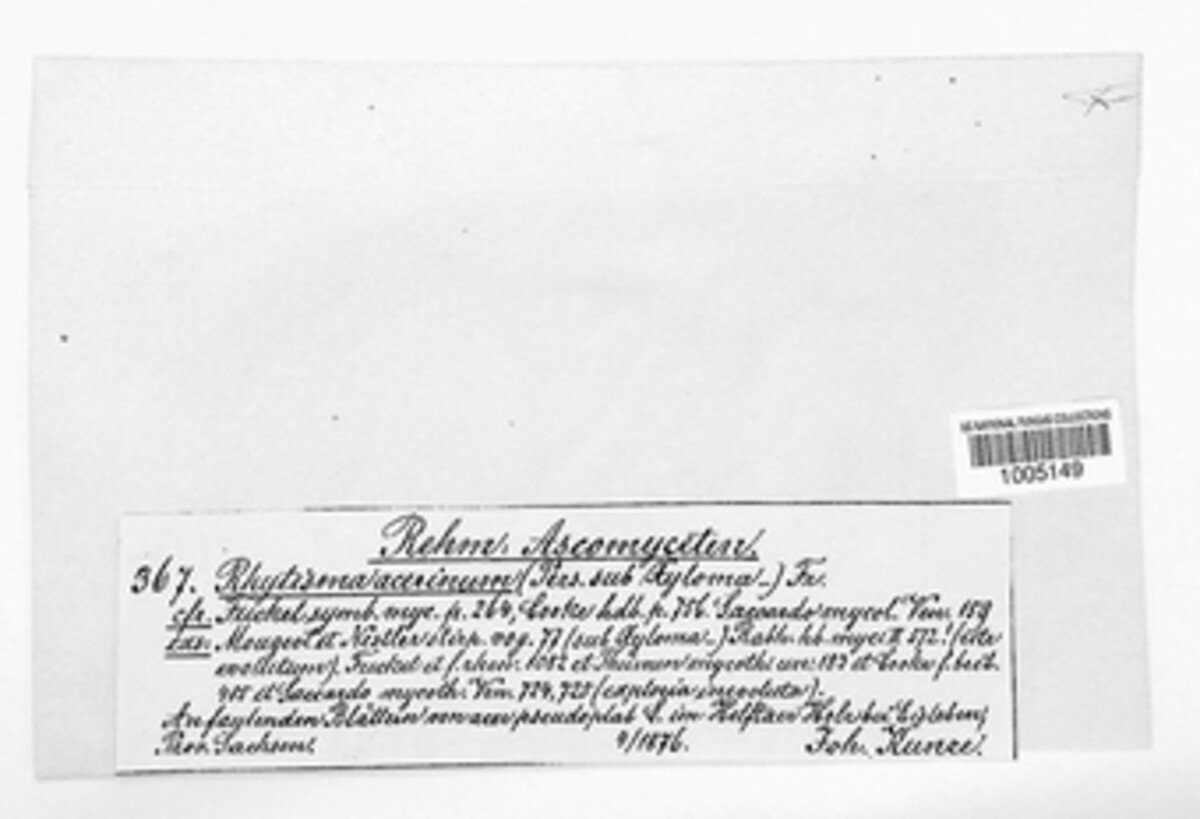 US NATIONAL FUNGUS COLLECTIONS
1005149
Rehm. Ascomyceten.
367. Rhytisma acerinum (Pers. sub Xyloma.) Fr.
cfr. Fuckel symb. myc. p. 264, Cooke hdb. p. 756. Saccardo mycol. Ven. 159
Mougeot et Nestler stirp. vog. 77 (sub Xyloma.) Rabh. hb. myc. II 572!
Fuckel et f. rhen. 1052 et Thümen mycoth. univ. 183 et Cooke f. brit.
et Saccardo mycoth. Ven. 724, 725
An Blättern von acer pseudoplat L. im Helftaer Holz bei Eisleben,
Prov. Sachsen. 9/1876. Joh. Kunze.